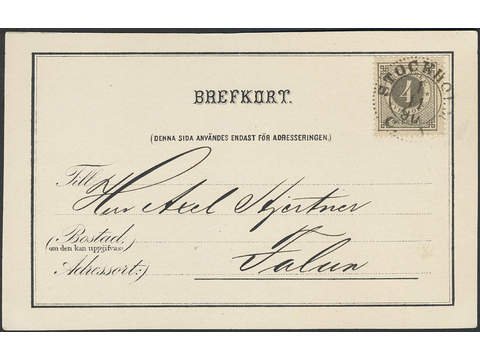 BREFKORT.
(DENNA SIDA ANVÄNDES ENDAST FÖR ADRESSERINGEN.)
STOCKHOLM
4
Till Herr Axel Hjertner
Bostad,
(om den kan uppgifvas:)
Adressort: Falun